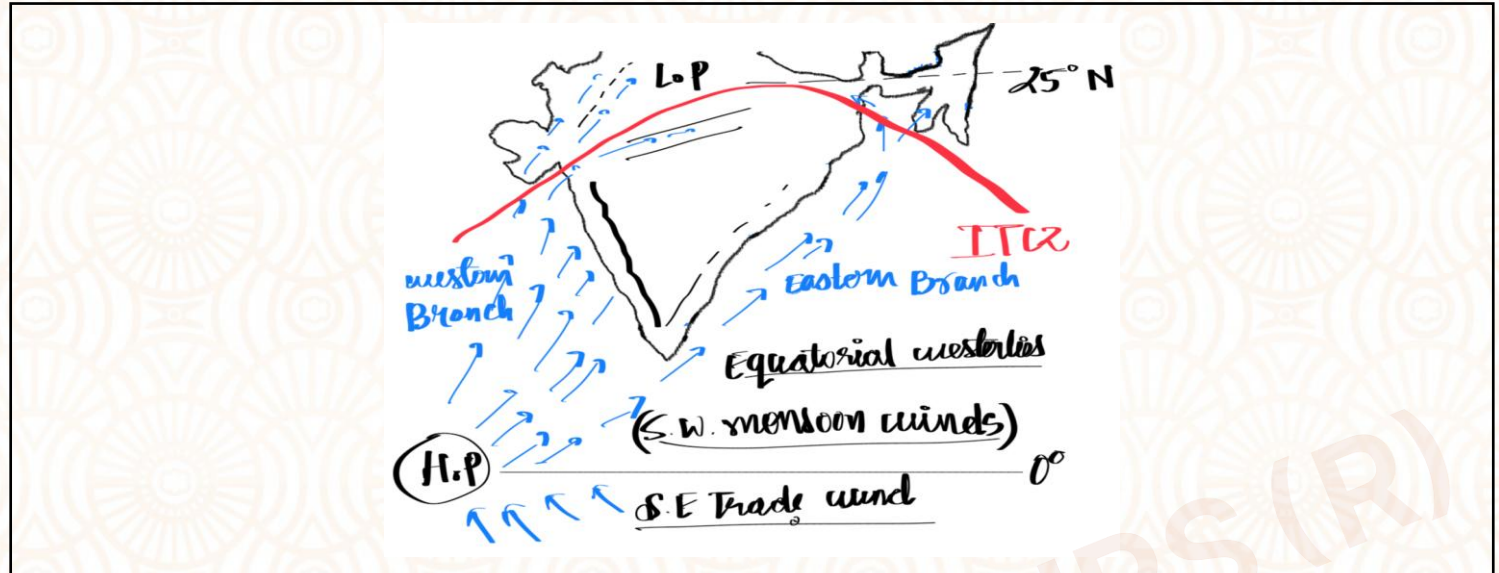 L.P
25° N
ITCZ
western
Branch
Eastern Branch
Equatorial westerlies
(S.W. monsoon winds)
H.P
0°
S.E Trade wind
PS (R)